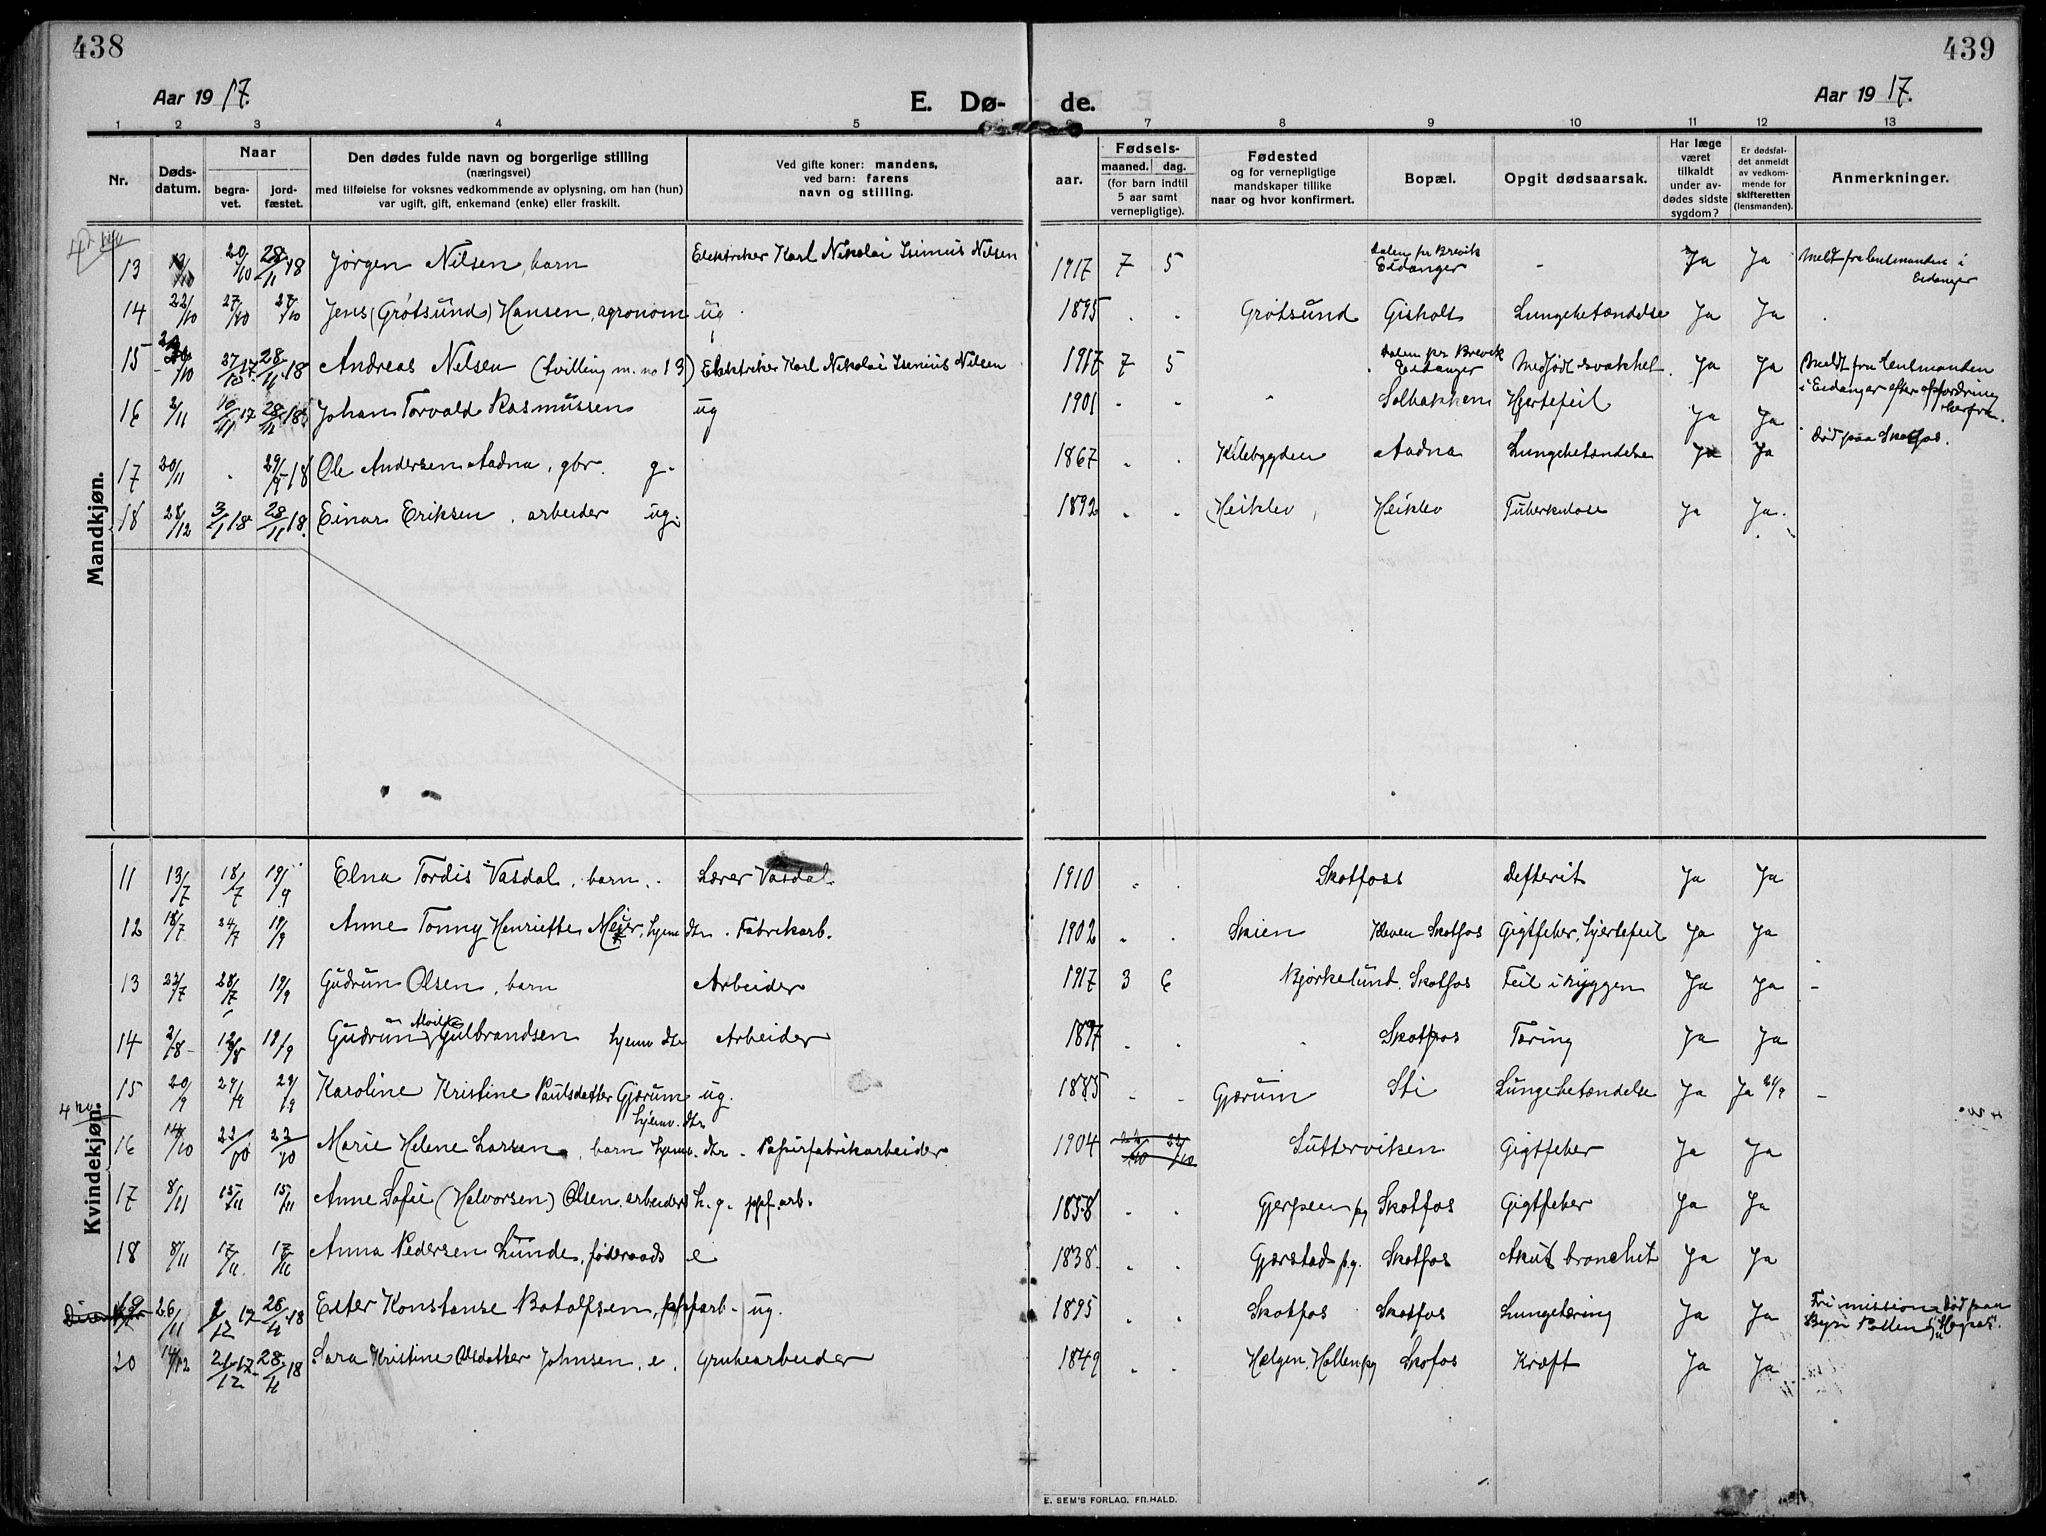 438
439
Aar 1917.
E. Dø-
de.
Aar 1917.
1 2 3 4 5 7 8 9 10 11 12 13
Nr.
Døds-
datum.
Naar
begra-
vet.
jord-
fæstet.
Den dødes fulde navn og borgerlige stilling
(næringsvei)
med tilføielse for voksnes vedkommende av oplysning, om han (hun)
var ugift, gift, enkemand (enke) eller fraskilt.
Ved gifte koner: mandens,
ved barn: farens
navn og stilling.
aar.
Fødsels-
maaned. dag.
(for barn indtil
5 aar samt
vernepligtige).
Fødested
og for vernepligtige
mandskaper tillike
naar og hvor konfirmert.
Bopæl.
Opgit dødsaarsak.
Har læge
været
tilkaldt
under av-
dødes sidste
sygdom?
Er dødsfal-
det anmeldt
av vedkom-
mende for
skifteretten
(lensmanden).
Anmerkninger.
Mandkjøn.
13 20/10 28/11 18 Jørgen Nilsen, barn Elektriker Karl Nikolai Isinius Nilsen 1917 7 5 Dalen pr Brevik Eidanger - Ja Ja Meldt fra lensmanden i Eidanger
14 22/10 27/10 27/10 Jens (Grøtsund) Hansen, agronom ug 1895 Grøtsund Gisholt Lungebetændelse Ja Ja
15 28/11 18 Andreas Nilsen (tvilling m. no 13) Elektriker Karl Nikolai Isinius Nilsen 1917 7 5 Dalen pr Brevik Eidanger Medfødt svakhet. Ja Ja Meldt fra lensmanden i Eidanger efter opfordring herfra.
16 2/11 10/11 17 28/11 18 Johan Torvald Rasmussen ug 1901 " Solbakken Hjertefeil Ja Ja Død paa Skotfos.
17 20/11 Ole Andersen Aadna, gbr. g. 1867 Kilebygden Aadna Lungebetændelse Ja Ja
18 28/12 3/1 18 28/11 18. Einar Eriksen, arbeider ug. 1892 Heiklev Heiklev Tuberkulose Ja Ja.
Kvindekjøn.
11 13/7 18/7 19/9 Elna Tordis Vasdal, barn. Lærer Vasdal. 1910 Skotfoss Defterit Ja Ja
12 18/7 24/7 19/9 Anne Tonny Henriette Meier, hjemv. dtr. Fabrikarb. 1902 Skien Kleven Skotfos Gigtfeber, hjertefeil Ja Ja
13 23/7 28/7 19/9 Gudrun Olsen, barn Arbeider 1917 3 6 Bjørkelund. Skotfos Feil i ryggen Ja Ja -
14 2/8 12/8 19/9 Gudrun Gulbrandsen hjemv dtr Arbeider 1897 Skotfos Tæring Ja Ja
15 20/9 29/9 29/9 Karoline Kristine Paulsdatter Gjærum ug. 1885 Gjærum Sti Lungebetændelse Ja Ja 21/9 -
hjemv. dtr
16 14/10 22/10 22/10 Marie Helene Larsen, barn hjemv. dtr. Papirfabrikarbeider 1904 22/10 22/10 Sutterviken Gigtfeber Ja Ja
17 8/11 15/11 15/11 Anne Sofie (Halvorsen) Olsen, arbeiders h. g. ppf. arb. 1858 Gjerpen pg Skotfos Gigtfeber Ja Ja
18 8/11 17/11 17/11 Anna Pedersen Lunde, føderaads e 1838. Gjerstad p.g. Skotfos Akut bronchit Ja Ja
19 26/11 2/12 17 28/11 18 Ester Konstanse Botolfsen, ppfarb. ug. 1895 Skotfos Skotfos Lungetæring Ja Ja Fri mission. Død paa
20 14/12 21/12 17 28/11 18 Sara Kristine Olsdatter Johnsen, e, Grubearbeider 1849 Helgen, Hollen pg Skofos Kræft Ja Ja
E. SEM'S FORLAG, FR.HALD.